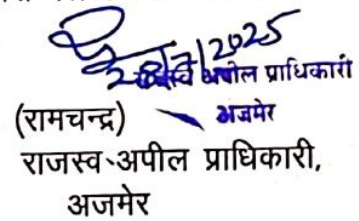 28/7/2025
राजस्व अपील प्राधिकारी
अजमेर
(रामचन्द्र)
राजस्व अपील प्राधिकारी,
अजमेर